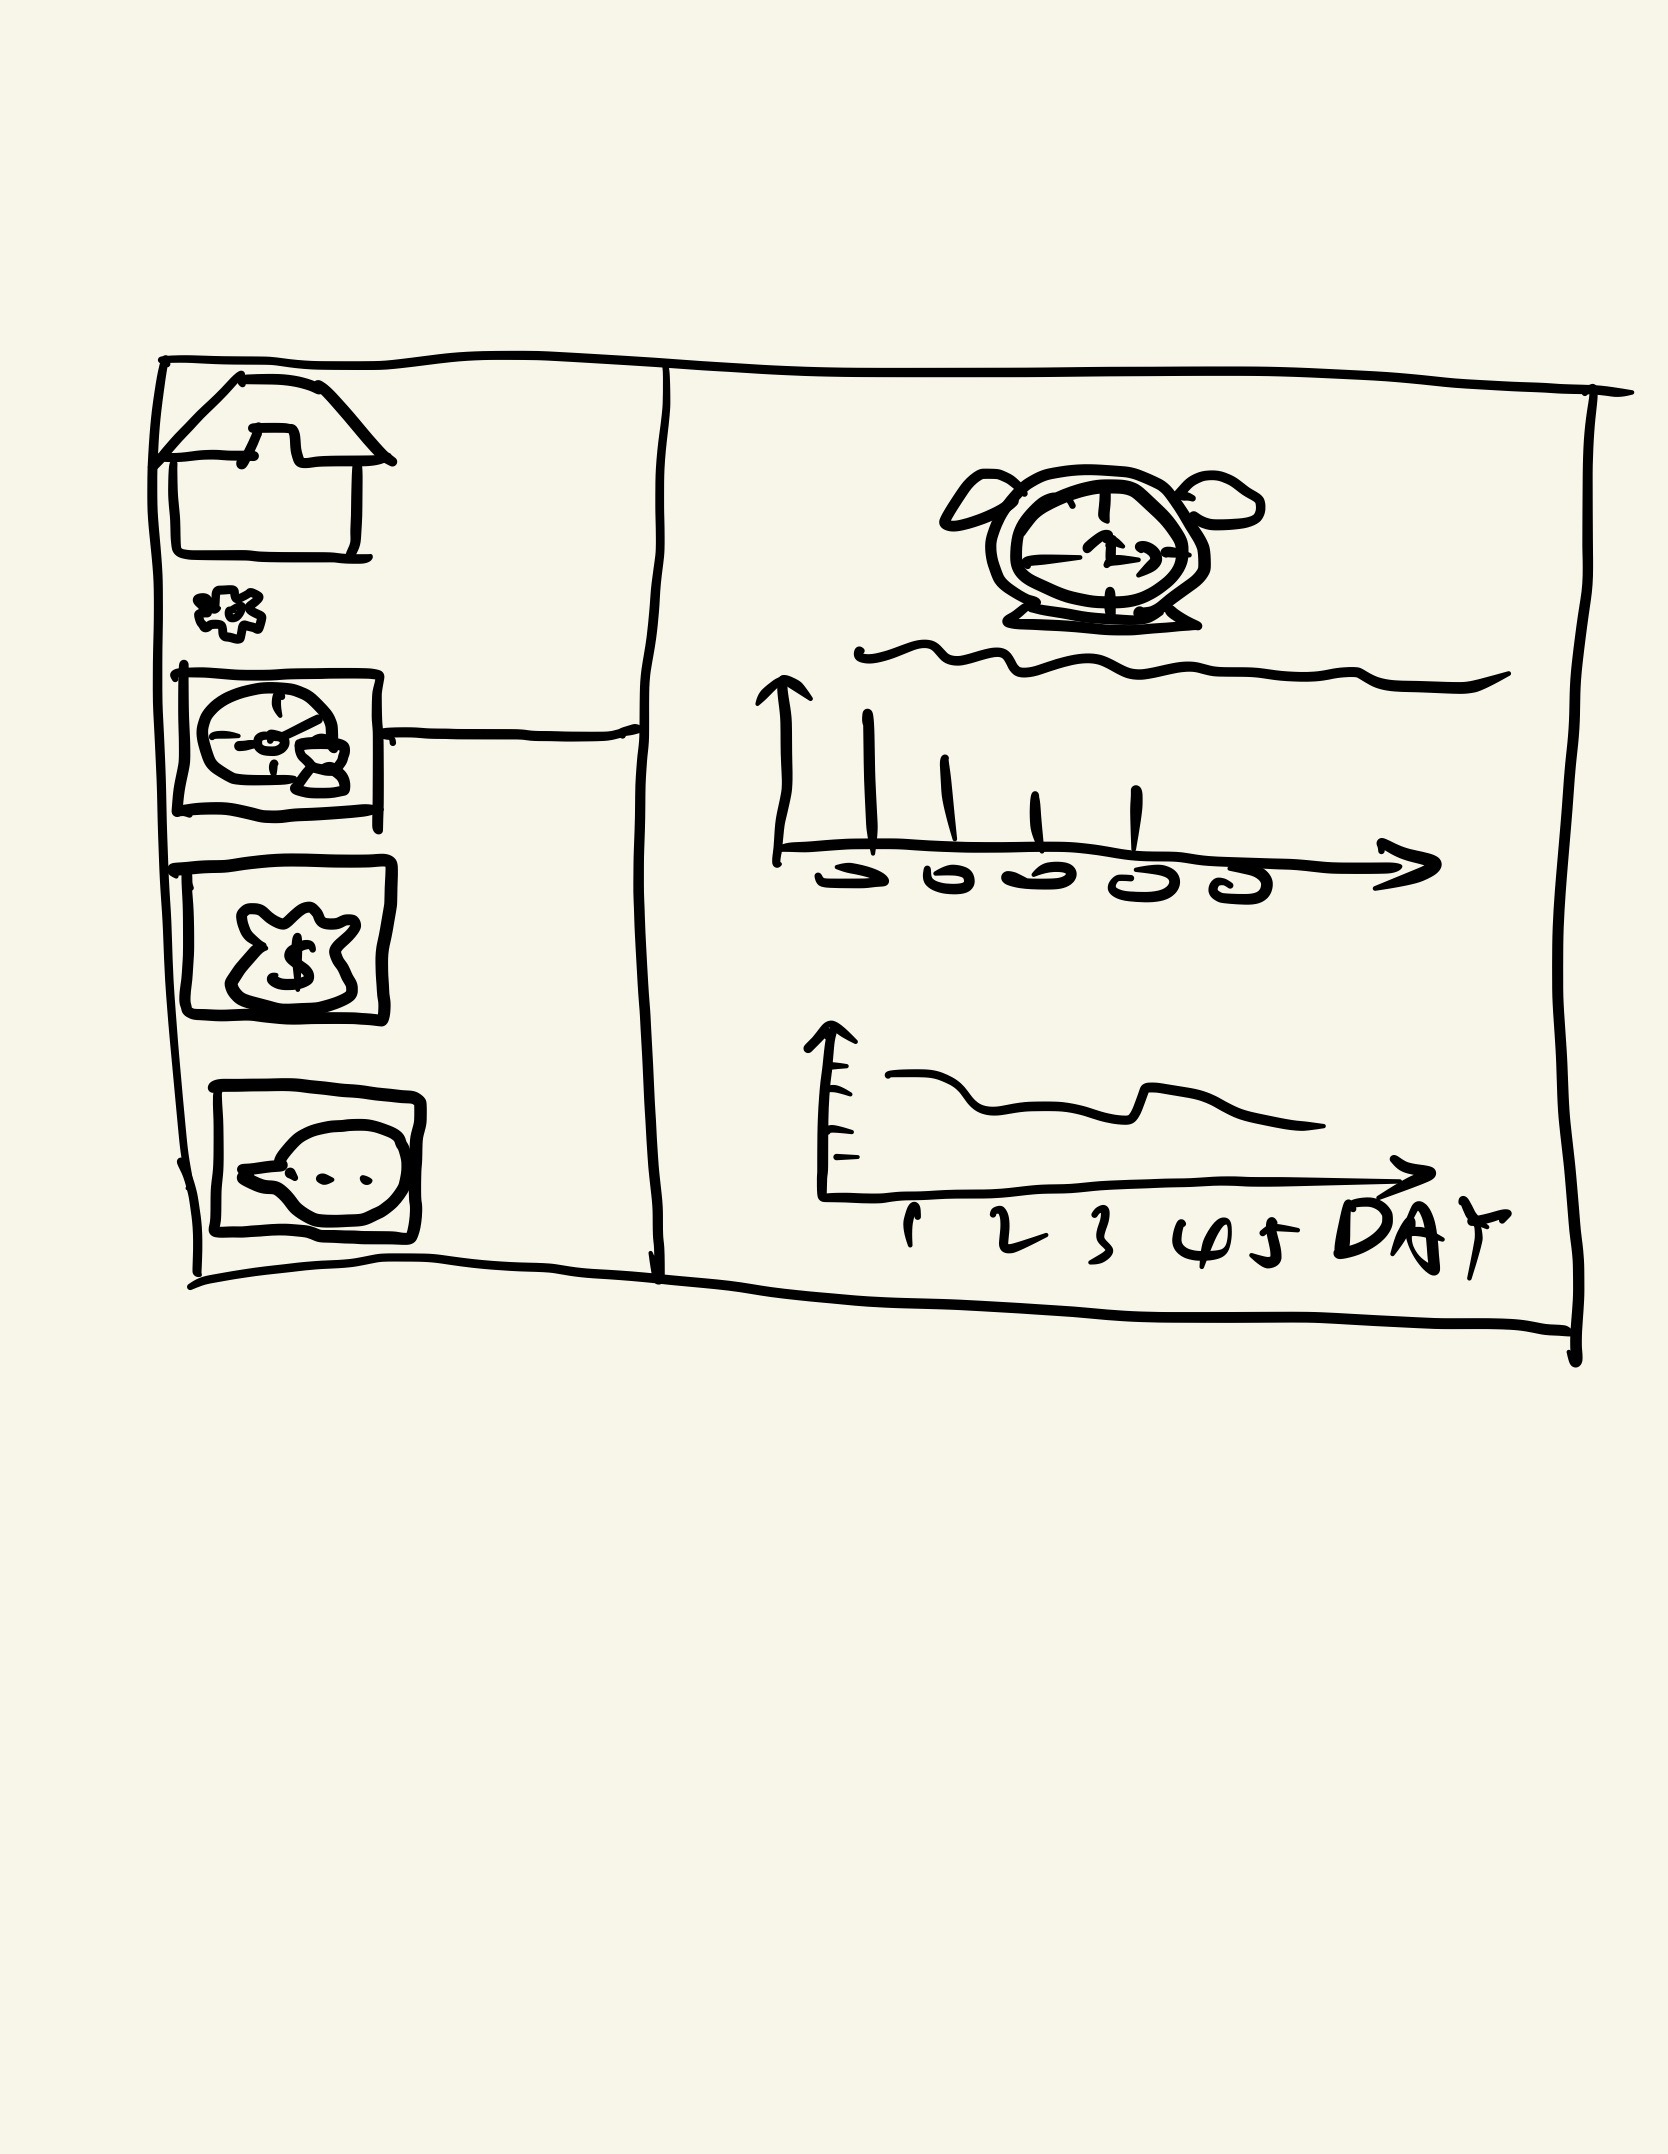 $
1 2 3 4 5 DAY